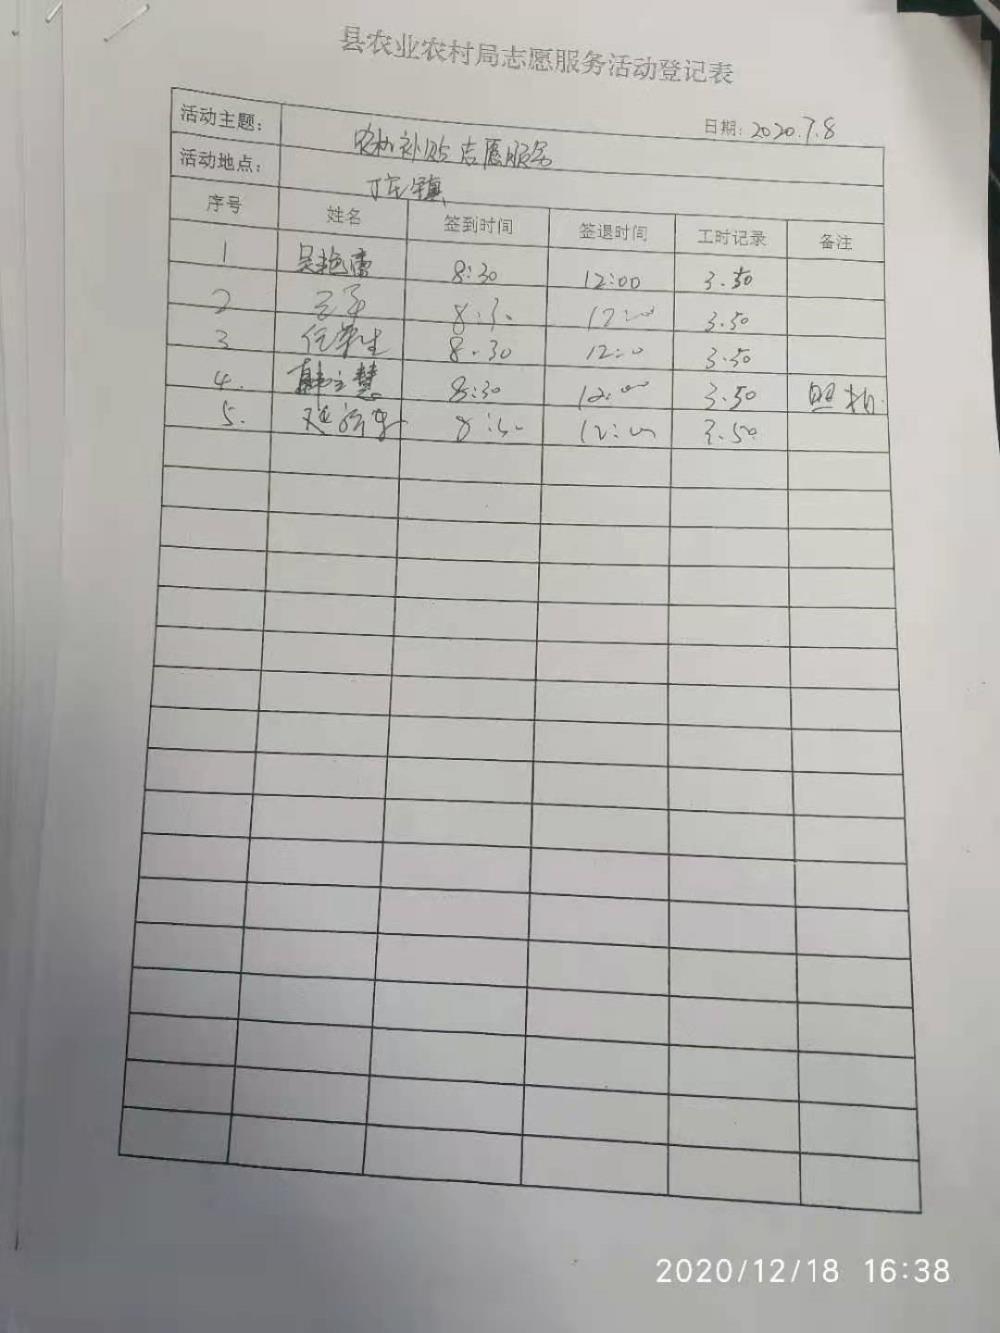 县农业农村局志愿服务活动登记表
日期: 2020.7.8
活动主题: 农机补贴志愿服务
活动地点: 丁庄镇
序号 姓名 签到时间 签退时间 工时记录 备注
1 吴艳雷 8:30 12:00 3.50
2 8:30 12:00 3.50
3 任荣生 8:30 12:00 3.50
4. 韩立慧 8:30 12:00 3.50 照相.
5. 8:30 12:00 3.50
2020/12/18 16:38